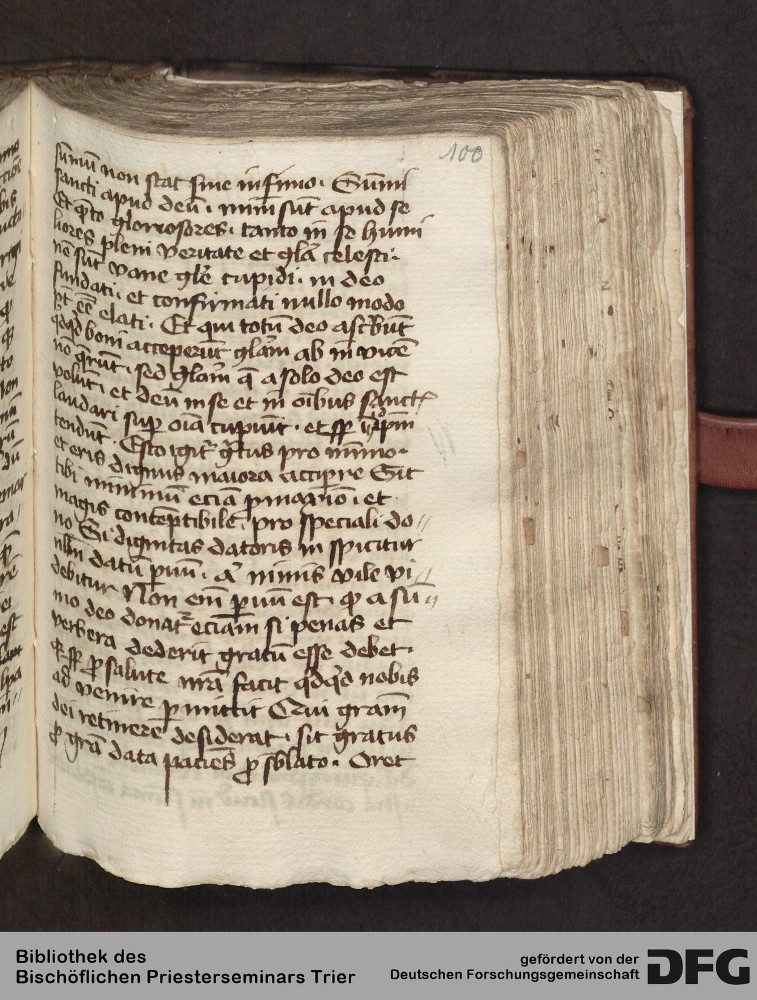 100
sūmū non stat sine infimo. Sūmi
sancti apud deū. minimi sūt apud se
Et q̄to gloriosiores. tanto in se humi
liores pleni veritate et gl̄a celesti.
nō sūt vane gl̄e cupidi. in deo
fundati. et confirmati nullo modo
pn̄t eē elati. Et qui totū deo ascbūt
qdqd boni acceperūt gl̄am ab in vicē
nō q̄rūt. sed gl̄am q̄ a solo deo est
volūt. et deū in se et in oībus sanct
laudari sup oīa cupiūt. et sp̄ in ipm̄
tendūt. Esto igit gtus pro mīmo.
et eris dignus maiora accipre Sit
tibi minimū eciā p maximo. et
magis contēptibile. pro speciali do//
no Si dignitas datoris in spicitur
nllm datū pvū. aut nimis vile vi//
debitur Non em̄ pvū est. qͦ a sū//
mo deo donat eciam si penas et
verbera dederit gratū esse debet.
q sp̄ p salute nr̄a facit qdqd nobis
ad venire pmittit Qui gram̄
dei retinere desiderat. sit gratus
p gr̄a data paciēs p sblato. Oret
Bibliothek des
Bischöflichen Priesterseminars Trier
gefördert von der
Deutschen Forschungsgemeinschaft
DFG